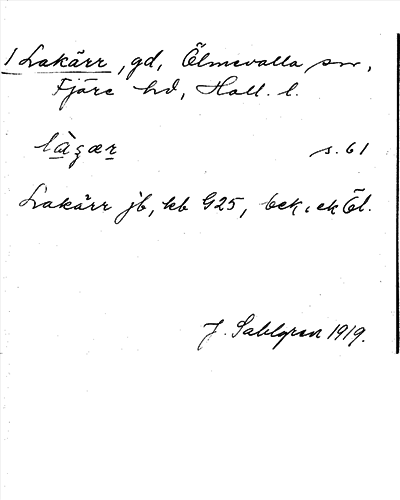 1 Lakärr, gd, Ölmevalla sn,
Fjäre hd, Hall. l.
s. 61
Lakärr jb, kb G25, bek, ek Öl.
J. Sahlgren 1919.